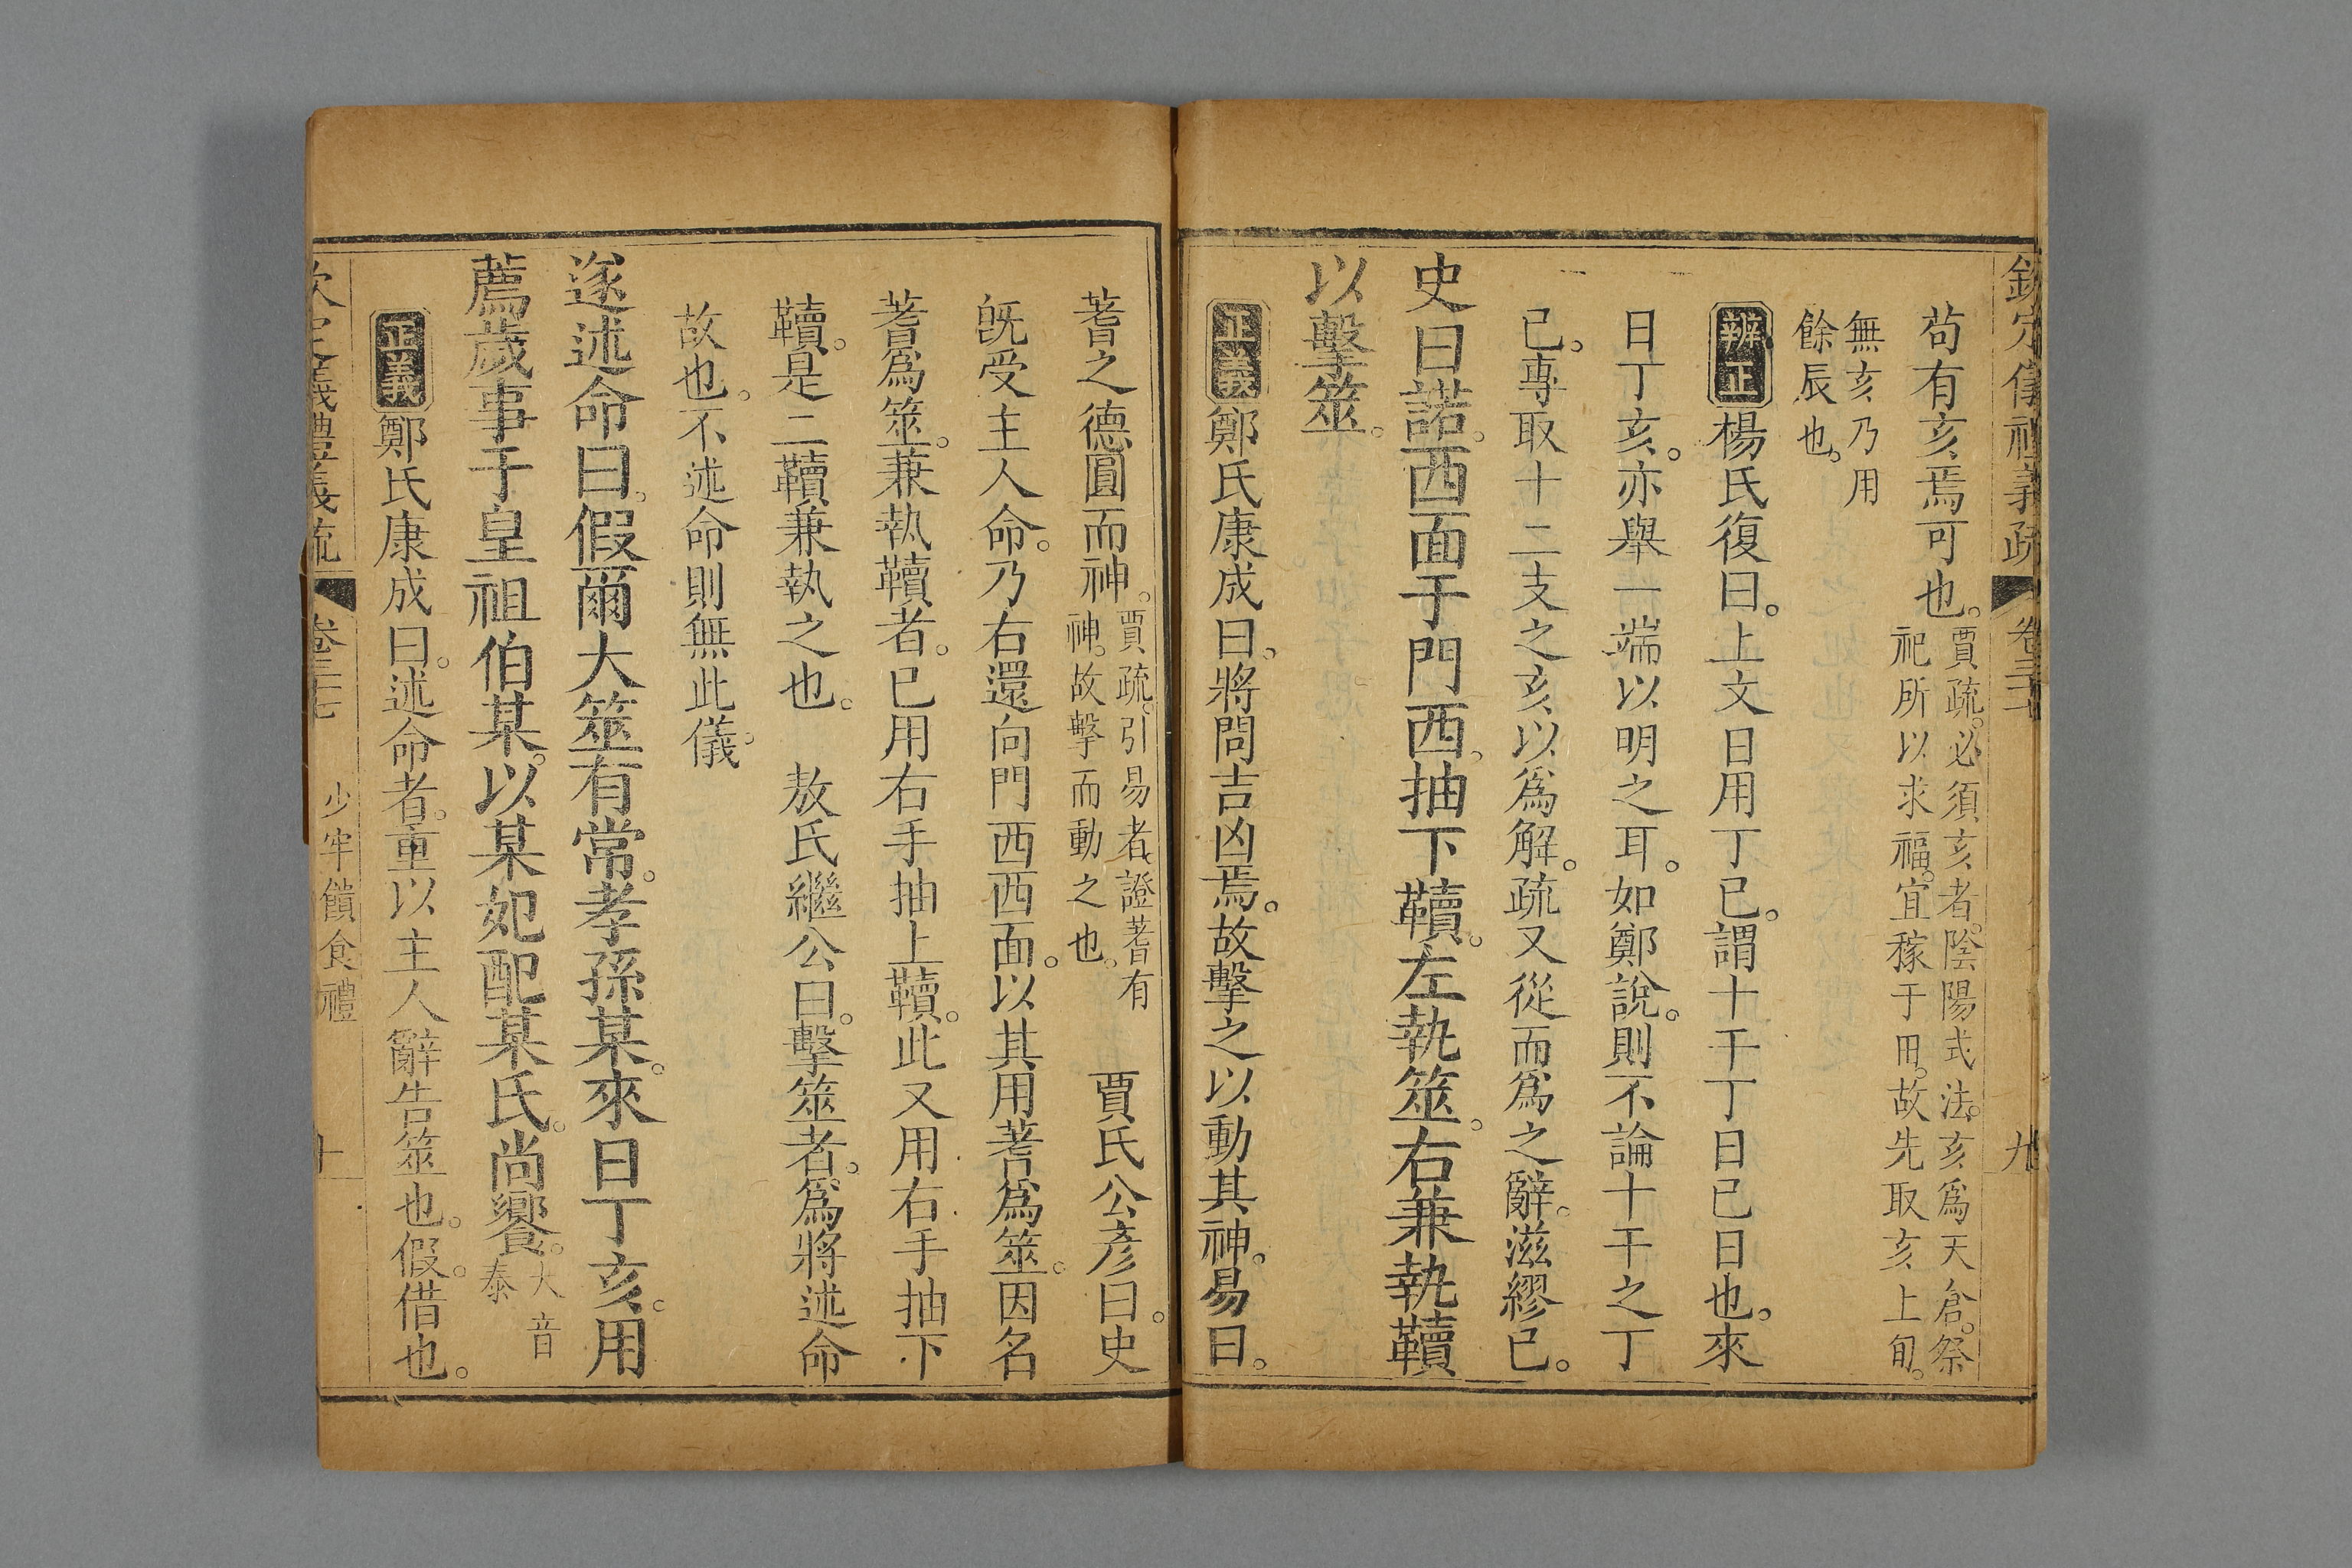 欽定儀禮義疏 卷三十七 九
苟有亥焉可也。賈疏。必須亥者。陰陽式法。亥爲天倉。祭
祀所以求福。宜稼于田。故先取亥上旬。
無亥乃用
餘辰也。
辨正 楊氏復曰。上文日用丁已。謂十干丁日已日也。來
日丁亥。亦舉一端以明之耳。如鄭說。則不論十干之丁
已。專取十二支之亥以爲解。疏又從而爲之辭。滋繆已。
史曰諾。西面于門西。抽下韇。左執筮。右兼執韇
以擊筮。
正義 鄭氏康成曰。將問吉凶焉。故擊之以動其神。易曰。
蓍之德圓而神。賈疏。引易者。證蓍有
神。故擊而動之也。
賈氏公彥曰。史
旣受主人命。乃右還向門西西面。以其用蓍爲筮。因名
蓍爲筮。兼執韇者。已用右手抽上韇。此又用右手抽下
韇。是二韇兼執之也。 敖氏繼公曰。擊筮者。爲將述命
故也。不述命則無此儀。
遂述命曰。假爾大筮有常。孝孫某。來日丁亥。用
薦歲事于皇祖伯某。以某妃配某氏。尚饗。大音
泰
正義 鄭氏康成曰。述命者。重以主人辭告筮也。假借也。
欽定儀禮義疏 卷三十七 少牢饋食禮 十